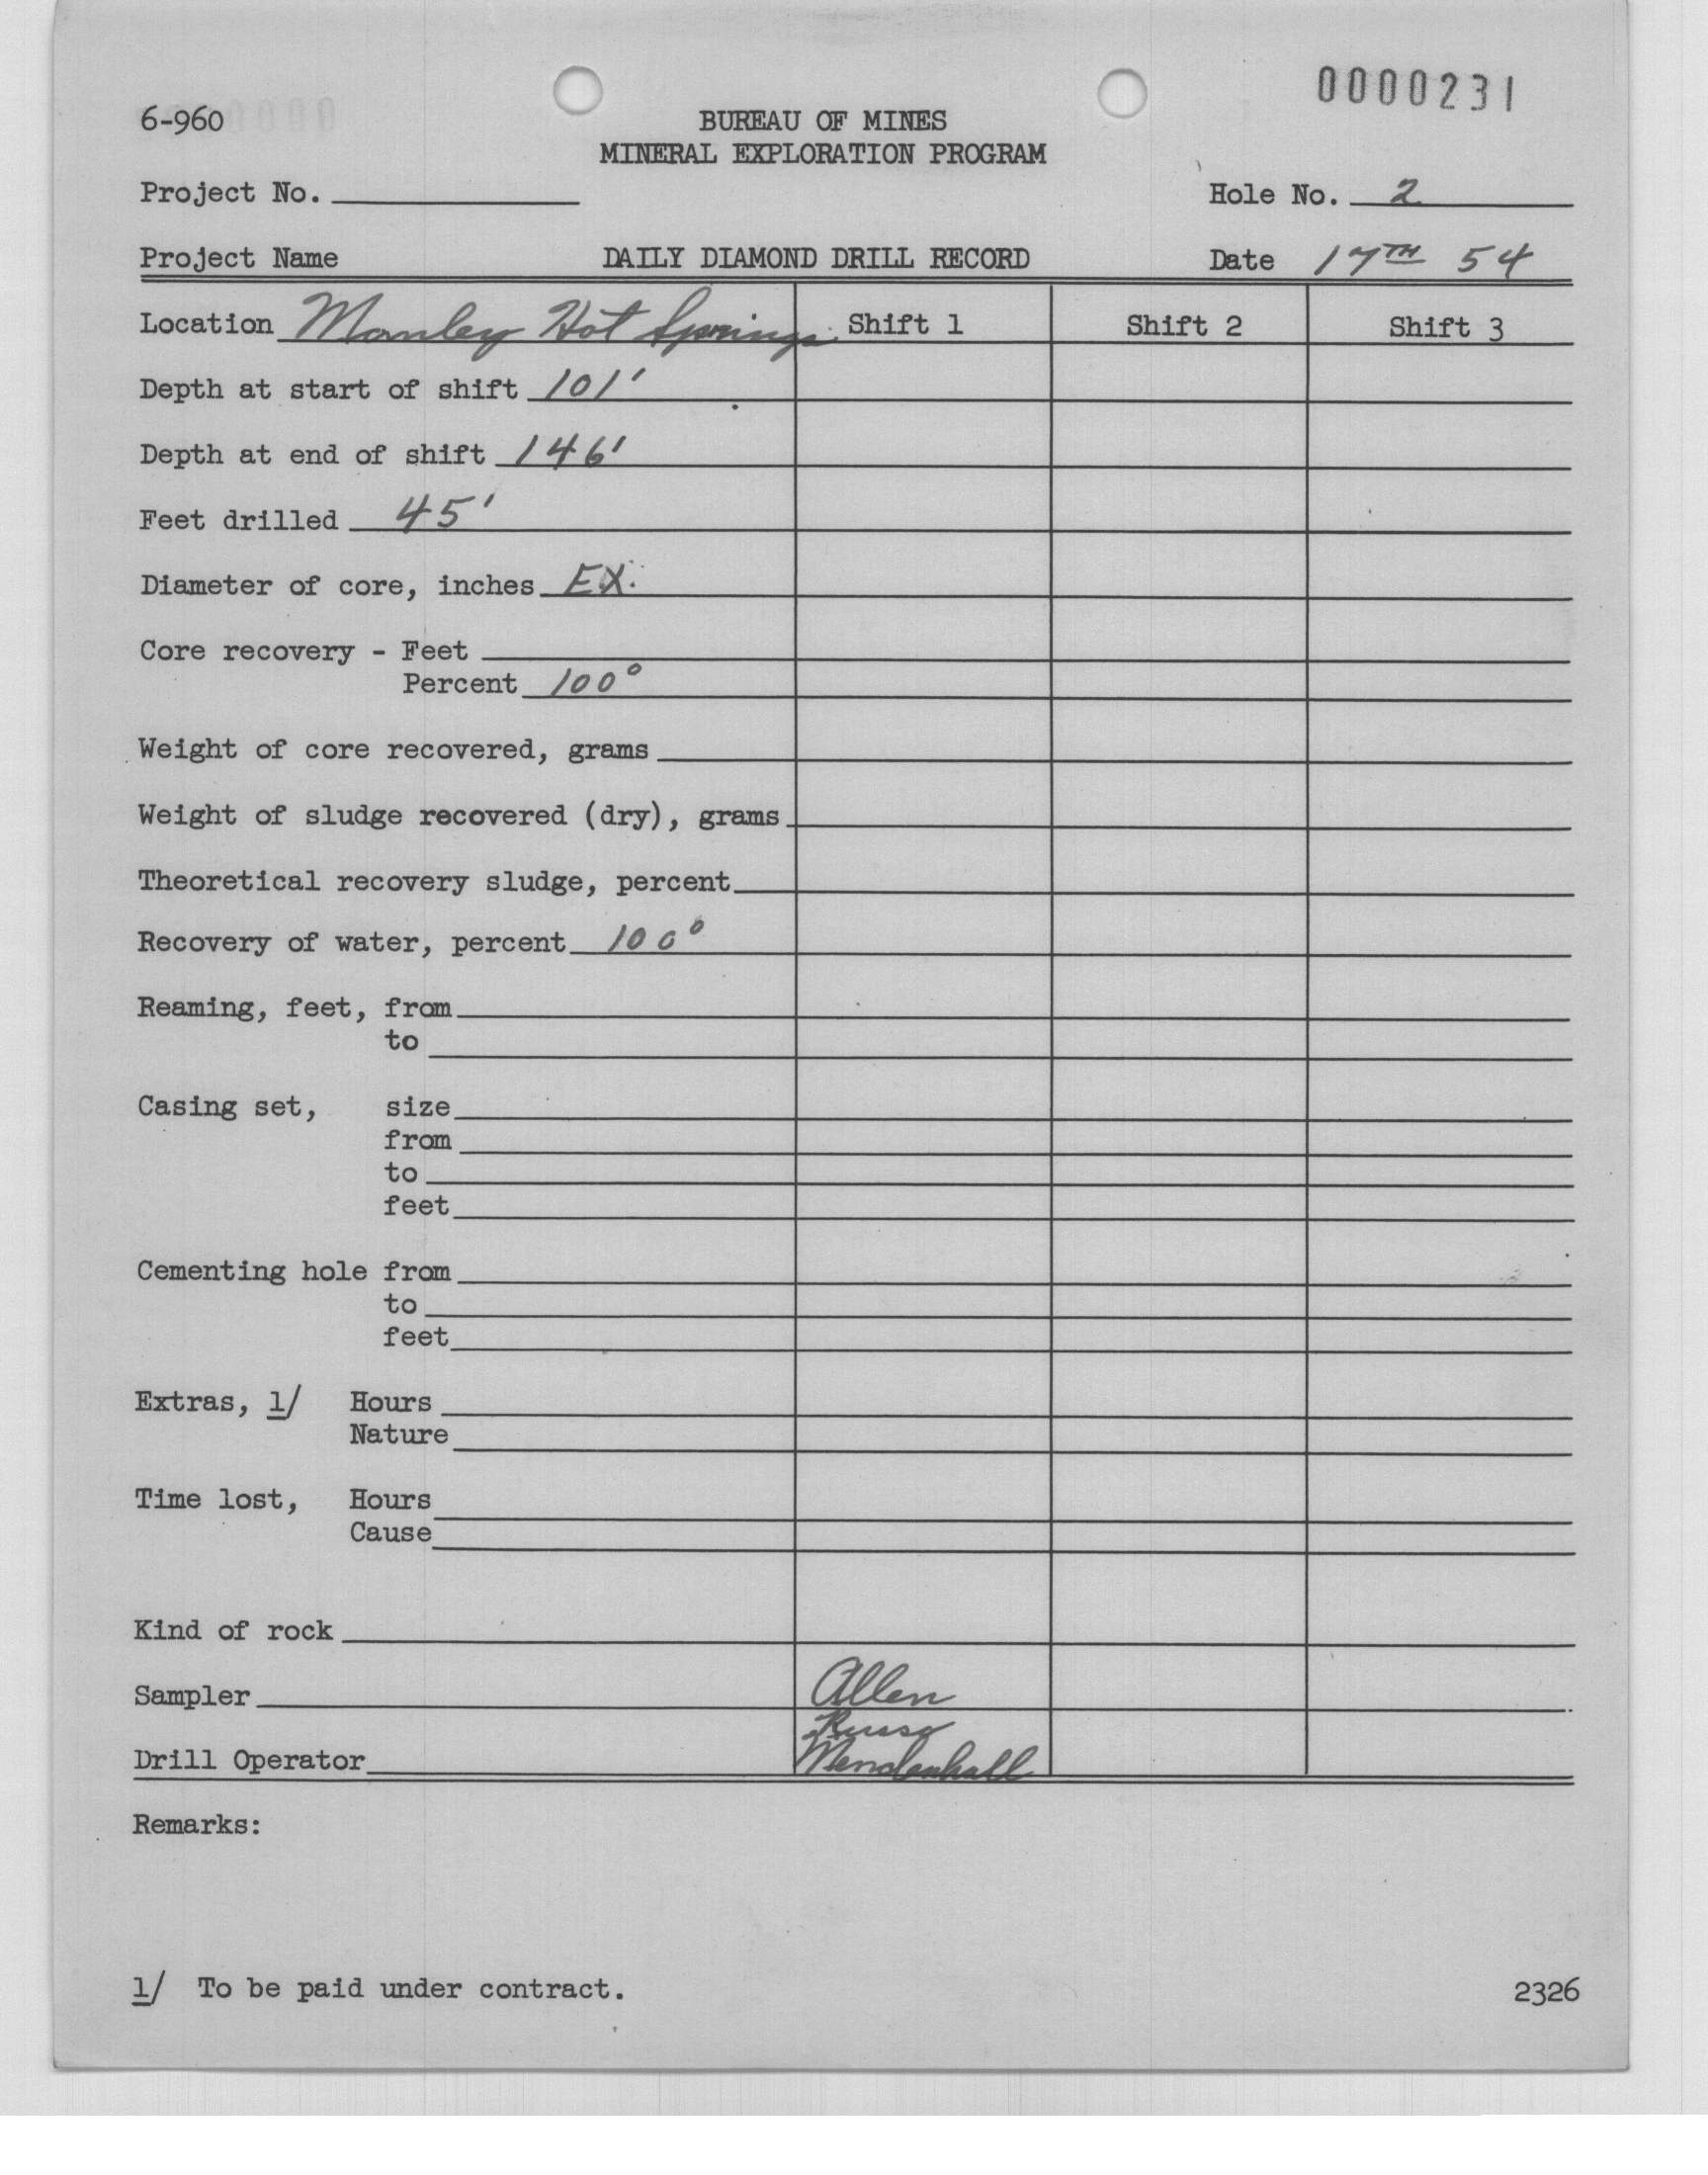 0000231
6-960
BUREAU OF MINES
MINERAL EXPLORATION PROGRAM
Project No.
Hole No. 2
Project Name DAILY DIAMOND DRILL RECORD Date 17TH 54
Location Manley Hot Springs Shift 1 Shift 2 Shift 3
Depth at start of shift 101'
Depth at end of shift 146'
Feet drilled 45'
Diameter of core, inches EX.
Core recovery - Feet
Percent 100°
Weight of core recovered, grams
Weight of sludge recovered (dry), grams
Theoretical recovery sludge, percent
Recovery of water, percent 100°
Reaming, feet, from
to
Casing set, size
from
to
feet
Cementing hole from
to
feet
Extras, 1/ Hours
Nature
Time lost, Hours
Cause
Kind of rock
Sampler Allen
Russo
Drill Operator Mendenhall
Remarks:
1/ To be paid under contract.
2326